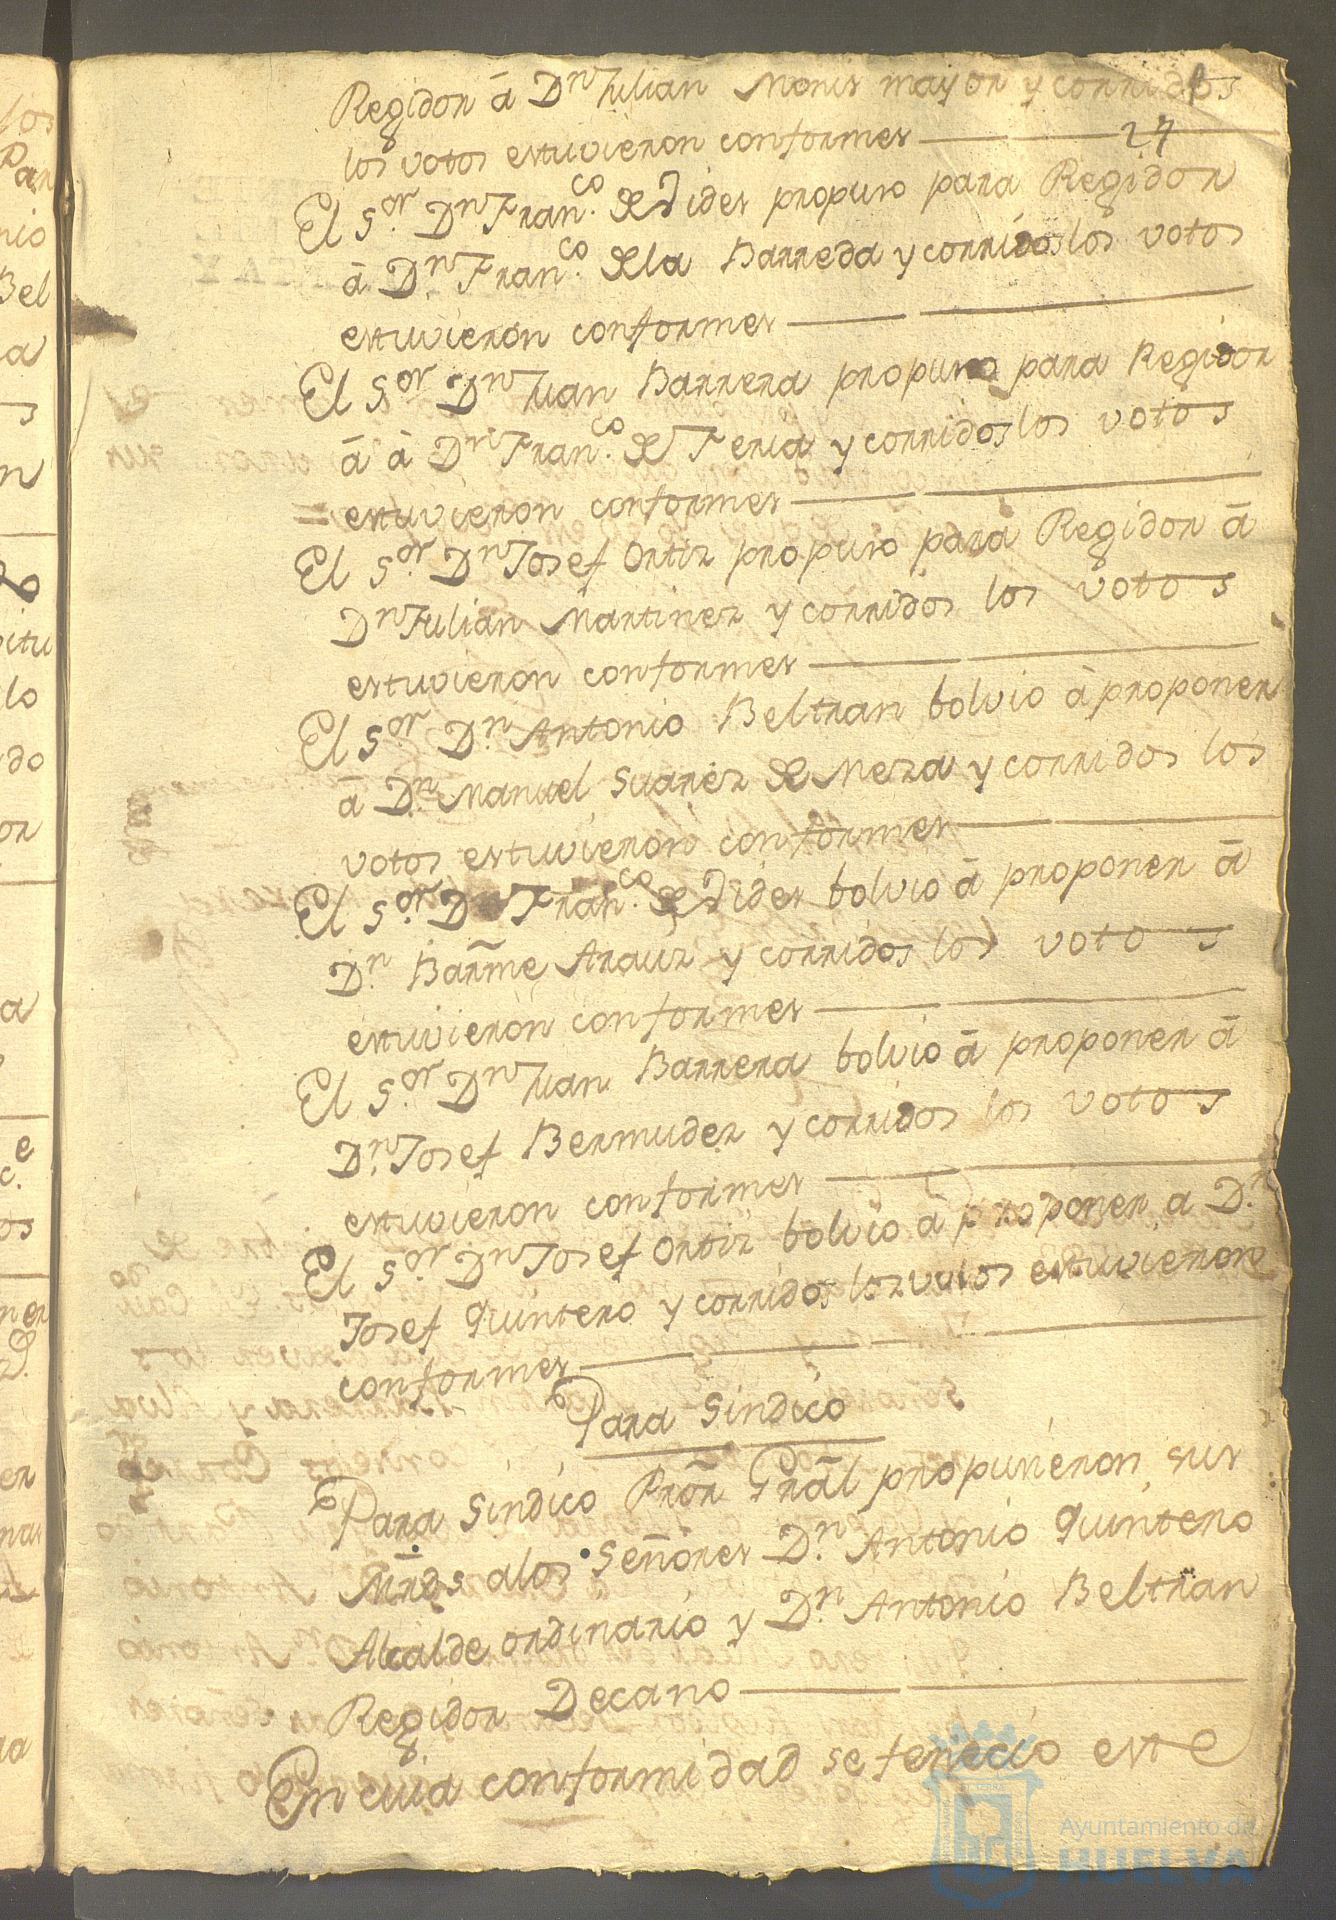 Regidor â Dn Julian Monis mayor y corridos
los votos estuvieron conformes
27
El Sor. Dn Franco. de Vides propuso para Regidor
â Dn Franco. dela Barreda y corridos los votos
estuvieron conformes
El Sor Dn Juan Barrera propuso para Regidor
â â Dn Franco. de Feria y corridos los votos
estuvieron conformes
El Sor. Dn Josef Ortiz propuso para Regidor â
Dn Julian Martinez y corridos los votos
estuvieron conformes
El Sor. Dn. Antonio Beltran bolvio â proponer
â Dn. Manuel Suarez de Meza y corridos los
votos estuvieron conformes
El Sor. Dn Franco. de Vides bolvio â proponer â
Dn. Barme Arauz y corridos los votos
estuvieron conformes
El Sor. Dn Juan Barrera bolvio â proponer â
Dn. Josef Bermudez y corridos los votos
estuvieron conformes
El Sor. Dn Josef Ortiz bolvio â proponer a Dn.
Josef Quintero y corridos los votos estuvieron
conformes
Para Sindico
Para Sindico Pror Gral propusieron sus
Mrds alos Señores Dn. Antonio Quintero
Alcalde ordinario y Dn. Antonio Beltran
Regidor Decano
En cuia conformidad se feneció este
Ayuntamiento de
HUELVA